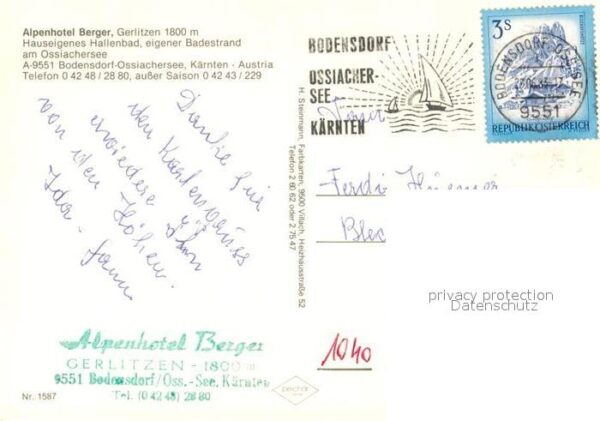 Alpenhotel Berger, Gerlitzen 1800 m
Hauseigenes Hallenbad, eigener Badestrand
am Ossiachersee
A-9551 Bodensdorf-Ossiachersee, Kärnten · Austria
Telefon 0 42 48 / 28 80, außer Saison 0 42 43 / 229
Danke für
den Kartengruss
erwiedere ihn
von den Höhen.
BODENSDORF
OSSIACHER-
SEE
KÄRNTEN
3S
BODENSDORF-OSSIACHERSEE
9551
REPUBLIK ÖSTERREICH
H. Steinmann, Farbkarten, 9500 Villach, Heizhausstraße 52
Telefon 2 80 62 oder 2 75 47
Ferdi
privacy protection
Datenschutz
Alpenhotel Berger
GERLITZEN - 1800 m
9551 Bodensdorf/Oss.-See, Kärnten
Tel. (0 42 48) 28 80
1040
Nr. 1587